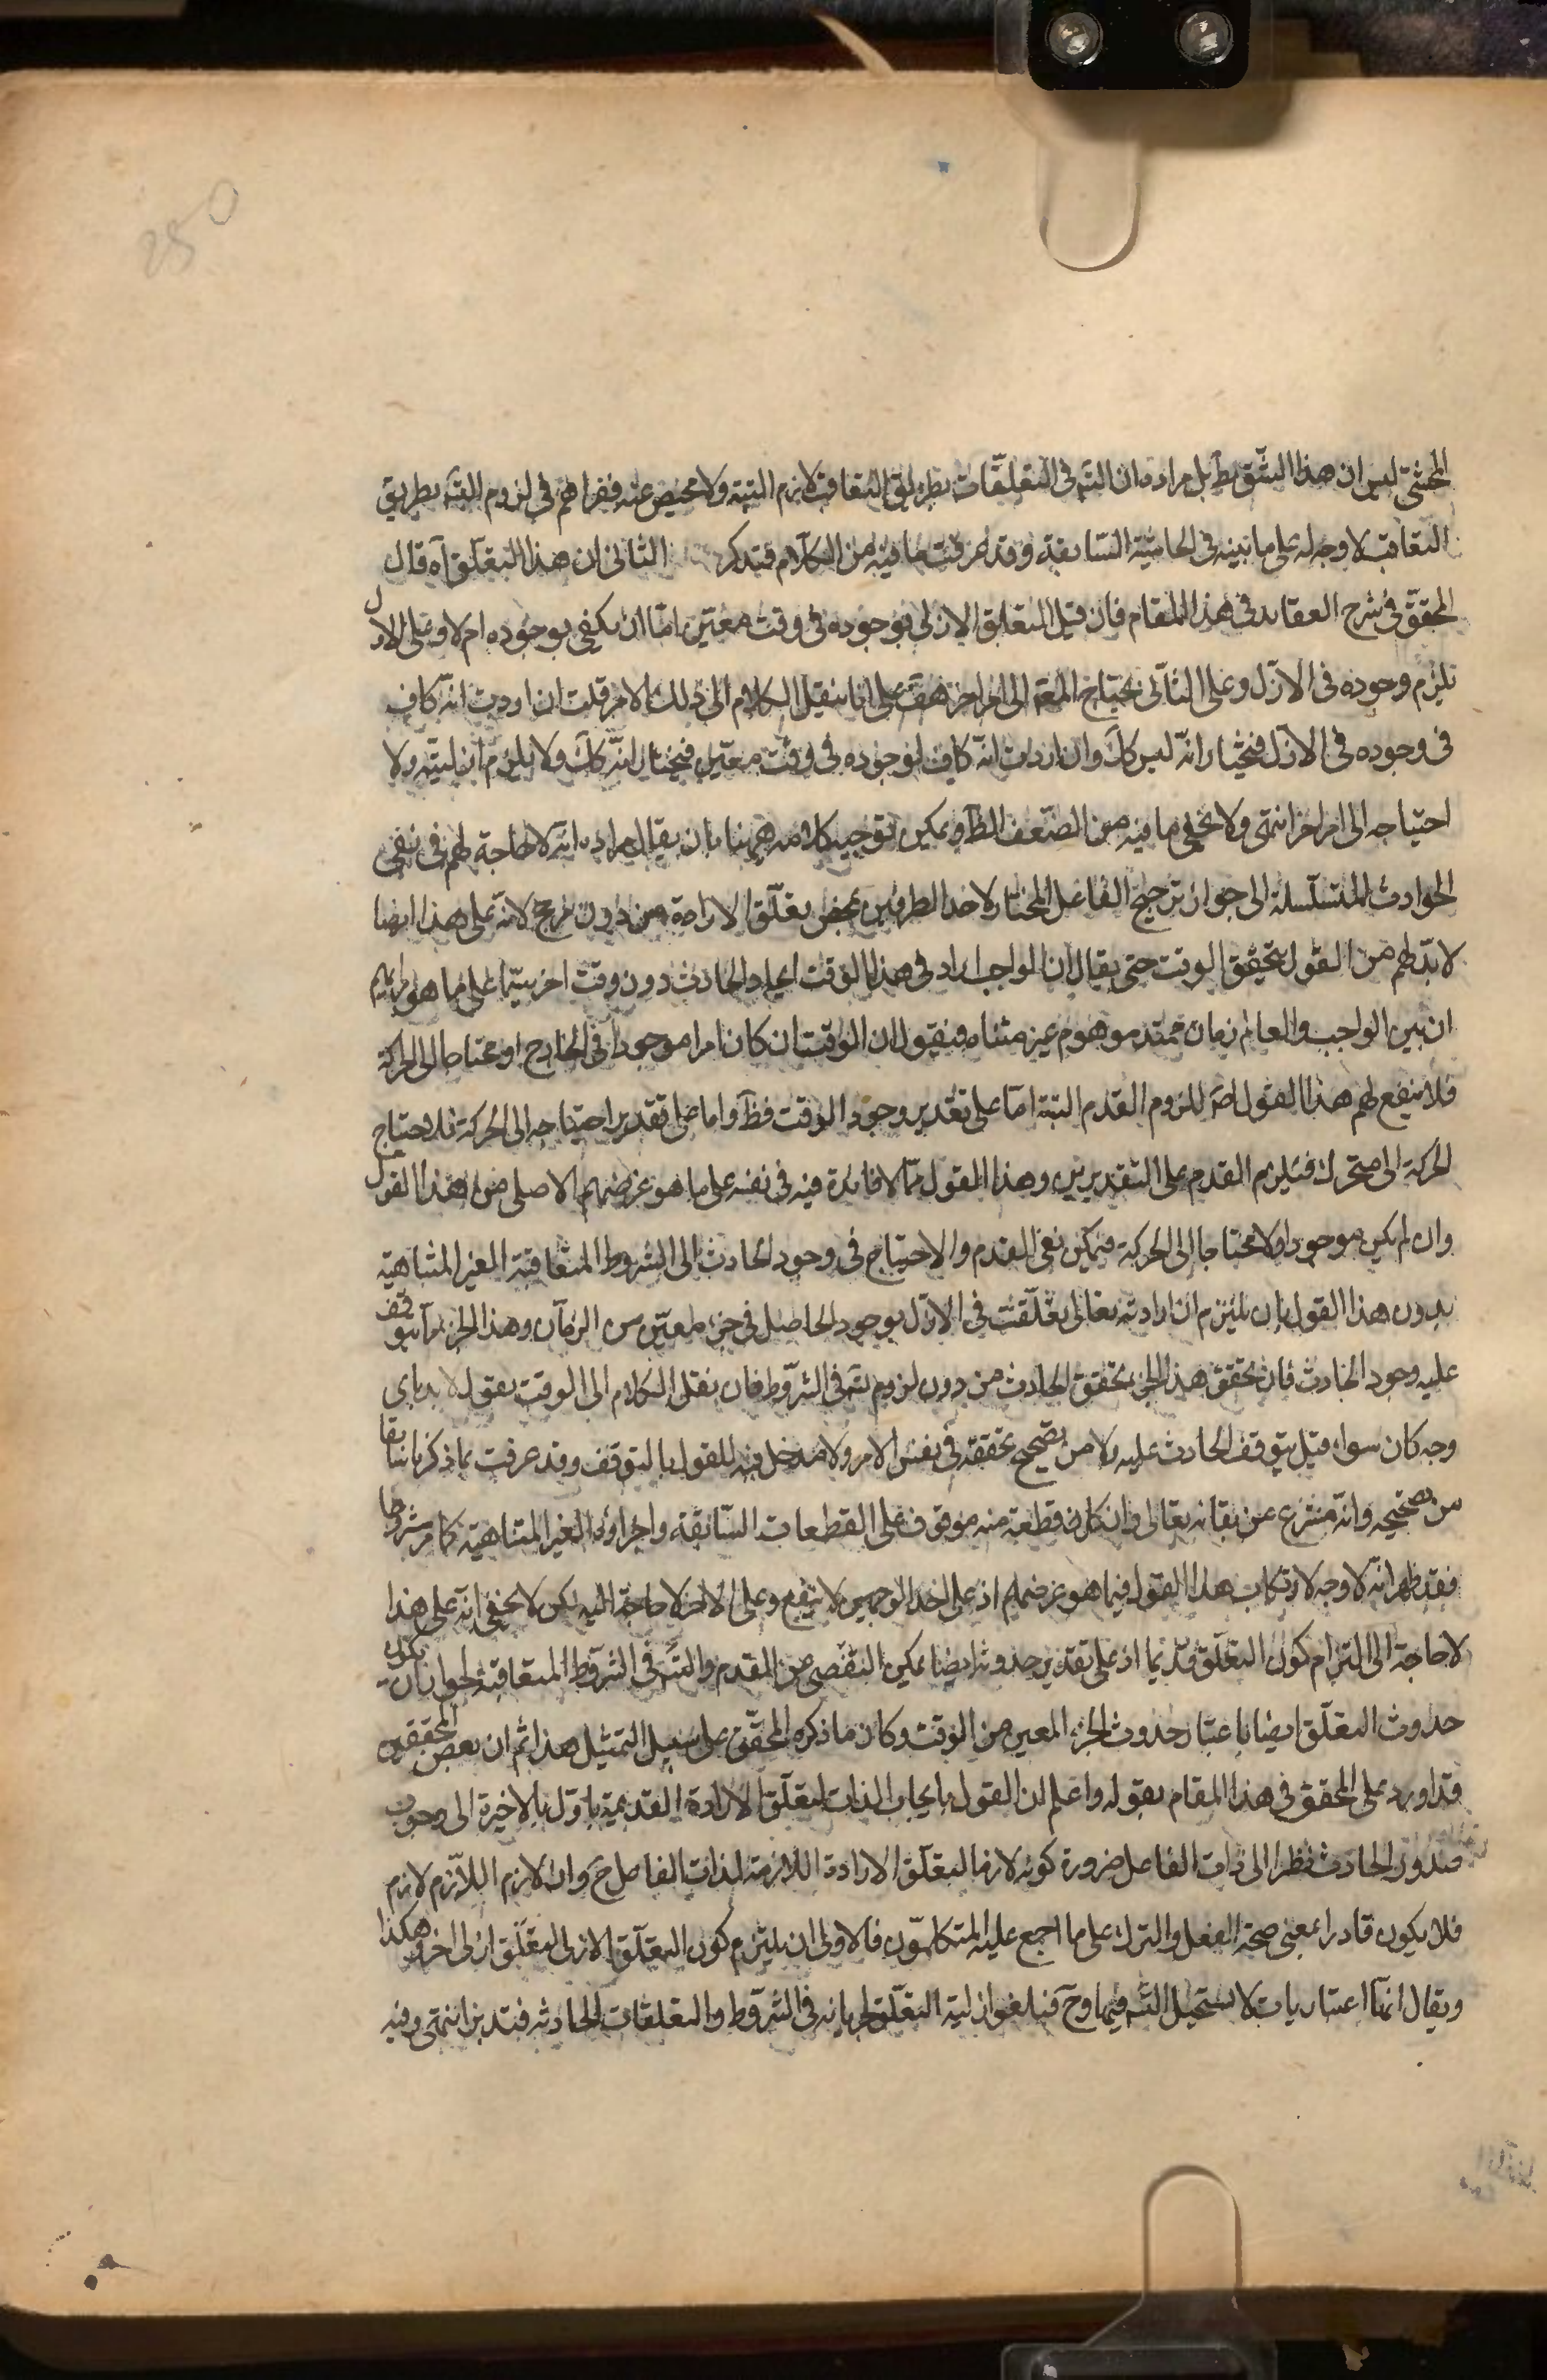 250
المحشّى ليس ان هذا الشّق بط بل مراده ان التسّ فى التعلّقات بطريق التعاقب لازم البتة ولا محيص عنه ففرارهم فى لزوم التسّ بطريق
التعاقب لا وجه له على ما نبينه فى الحاشية السّابقة وقد عرفت ما فيه من الكلام فتذكر الثانى ان هذا التعلّق آه قال
المحقّق فى شرح العقايد فى هذا المقام فان قيل التعلّق الازلى بوجوده فى وقت معيّن امّا ان يكفى بوجوده ام لا وعلى الاوّل
يلزم وجوده فى الازل وعلى الثانى يحتاج المعهّ الى امر اخر هفّ على انا ننقل الكلام الى ذلك الامر قلت ان اردت انّه كاف
فى وجوده فى الازل فنختار انّه ليس كك وان اردت انّه كاف لوجوده فى وقت معيّن فنختار انّه كك ولا يلزم ازليّته ولا
احتياجه الى امر اخر انتهى ولا يخفى ما فيه من الضّعف الظّ ويمكن توجيه كلامه ههنا بان يقال مراده انّه لا حاجة لهم فى نفى
الحوادث المتسلسلة الى جواز ترجيح الفاعل المختار لاحد الطرفين بمحض تعلّق الارادة من دون مرجح لانّه على هذا ايضا
لا بدّ لهم من القول بتحقق الوقت حتى يقال ان الواجب اراد فى هذا الوقت ايجاد الحادث دون وقت اخر سيّما على ما هو رايهم
ان بين الواجب والعالم زمان ممتد موهوم غير متناه فنقول ان الوقت ان كان امرا موجودا فى الخارج او محتاجا الى الحركة
فلا ينفع لهم هذا القول اصّ للزوم القدم البتة امّا على تقدير وجود الوقت فظّ واما على تقدير احتياجه الى الحركة فلاحتياج
الحركة الى متحرك فيلزم القدم على التقديرين وهذا القول ممّا لا فايدة فيه فى نفسه على ما هو غرضهم الاصلى من هذا القول
وان لم يكن موجودا ولا محتاجا الى الحركة فيمكن نفى القدم والاحتياج فى وجود الحادث الى الشروط المتعاقبة الغير المتناهية
بدون هذا القول بان يلتزم ان ارادته تعالى تعلّقت فى الازل بوجود الحاصل فى جزء معيّن من الزمان وهذا الجزء مما يتوقف
عليه وجود الحادث فان تحقق هذا الجزء تحقق الحادث من دون لزوم تسّ فى الشّروط فان نقل الكلام الى الوقت يقول لا بد باى
وجه كان سواء قيل بتوقف الحادث عليه ولا من تصحيح تحققه فى نفس الامر ولا مدخل فيه للقول بالتوقف وقد عرفت بما ذكرنا سابقا
من تصحيحه وانّه منتزع عن بقائه تعالى وان كان قطعة منه موقوف على القطعات السّابقة واجزاؤه الغير المتناهية كما مر شروطا
فقد ظهر انّه لا وجه لارتكاب هذا القول فيما هو غرضهم اذ على احد الوجهين لا ينفع وعلى الاخر لا حاجة اليه لكن لا يخفى انّه على هذا
لا حاجة الى التزام كون التعلّق قديما اذ على تقدير حدوثه ايضا يمكن التفصى من القدم والتسّ فى الشروط المتعاقبة لجواز ان يكون
حدوث التعلّق ايضا باعتبار حدوث الجزء المعين من الوقت وكان ما ذكره المحقّق على سبيل التمثيل هذا ثم ان بعض المحققين
قد اورد على المحقق فى هذا المقام بقوله واعلم ان القول بايجاب الذات لتعلّق الارادة القديمة ياوّل بالاخيرة الى وجوب
صدور الحادث نظرا الى ذات الفاعل ضرورة كونه لازما لتعلّق الارادة اللازمة لذات الفاعل حّ وان لازم اللازم لازم
فلا يكون قادرا بمعنى صحة الفعل والترك على ما اجمع عليه المتكلمون فالاولى ان يلتزم كون التعلّق الازلى لتعلّق ازلى اخر وهكذا
ويقال انها اعتباريات لا يستحيل التسّ فيها وحّ فيلغو ازلية التعلّق لجريانه فى الشروط والتعلقات الحادثة فتدبر انتهى وفيه